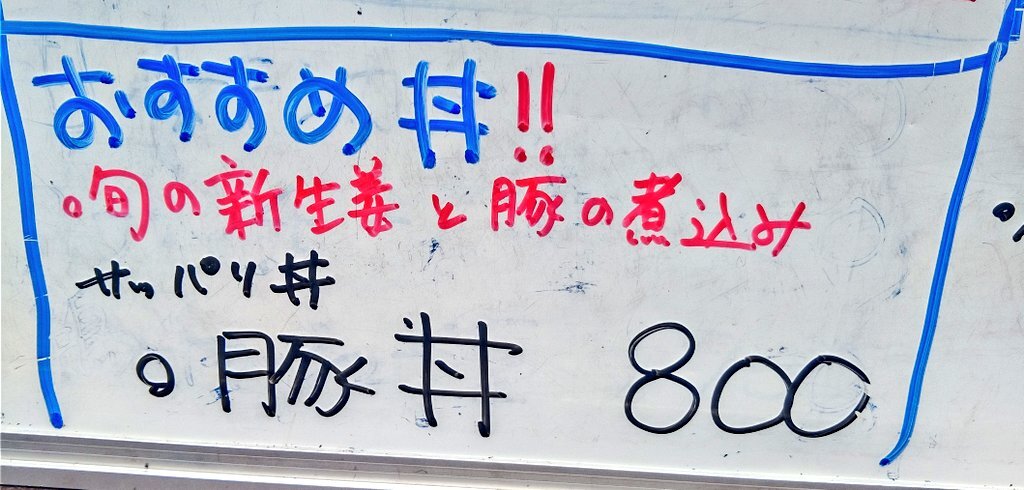 おすすめ丼!!
。旬の新生姜と豚の煮込み
サッパリ丼
。豚丼 800